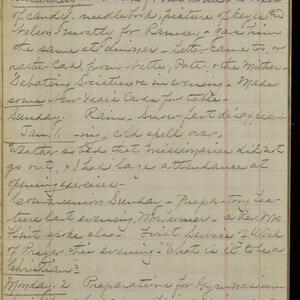 of candy, needlebook, picture of Keyes and
Nelson Smretty for Ramsey - gave him
the same at dinner. Letter came to, or
rather Card, from Nette, Polk, & the Mither.
Debating Societies in evening. Made
some New Year's Cards for table.
Sunday Rain - Snow fast disappear-
Jan. 1. -ing, cold spell over.
Weather so bad that missionaries did not
go out, & I had large attendance at
opening exercises.
Communion Sunday - Preparatory Lec-
ture last evening, Mr. Turner - a Rev. Mr.
spoke also. First Service of Week
of Prayer this evening. "What is it to be a
Christian"?
Monday, 2 Preparations for Gymnasium